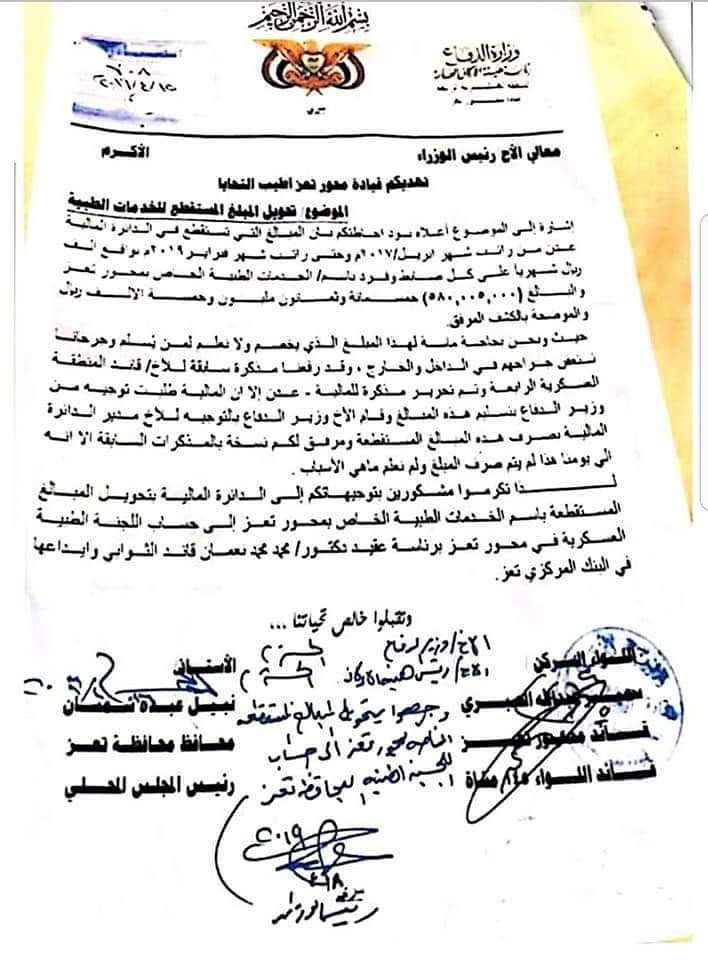 بسم الله الرحمن الرحيم
وزارة الدفاع
معالي الأخ/ رئيس الوزراء الأكرم
تهديكم قيادة محور تعز اطيب التحايا
الموضوع/ تحويل المبلغ المستقطع للخدمات الطبية
إشارة إلى الموضوع أعلاه نود احاطتكم بان المبالغ التي تستقطع في الدائرة المالية
عدن من راتب شهر ابريل/٢٠١٧م وحتى راتب شهر فبراير ٢٠١٩م بواقع الف
ريال شهرياً على كل ضابط وفرد باسم/ الخدمات الطبية الخاص بمحور تعز
والبالغ (٥٨٠,٠٠٥,٠٠٠) خمسمائة وثمانون مليون وخمسة الالف ريال
والموضحة بالكشف المرفق.
حيث ونحن بحاجة ماسة لهذا المبلغ الذي يخصم ولا نعلم لمن يُسلم وجرحانا
جراحهم في الداخل والخارج ، وقد رفعنا مذكرة سابقة للاخ/ قائد المنطقة
العسكرية الرابعة وتم تحرير مذكرة للمالية - عدن إلا ان المالية طلبت توجيه من
وزير الدفاع بتسليم هذه المبالغ وقام الأخ وزير الدفاع بالتوجيه للاخ مدير الدائرة
المالية بصرف هذه المبالغ المستقطعة ومرفق لكم نسخة بالمذكرات السابقة الا انه
الي يومنا هذا لم يتم صرف المبلغ ولم نعلم ماهي الأسباب .
لــذا تكرموا مشكورين بتوجيهاتكم إلى الدائرة المالية بتحويل المبالغ
المستقطعة باسم الخدمات الطبية الخاص بمحور تعز إلى حساب اللجنة الطبية
العسكرية في محور تعز برئاسة عقيد دكتور/ محمد محمد نعمان قائد الثوابي وايداعها
في البنك المركزي تعز.
وتقبلوا خالص تحياتنا ...
الاخ/ وزير الدفاع المحترم
الاخ/ رئيس هيئة الاركان المحترم
وجهوا بتحويل المبالغ المستقطعة
الخاصة بمحور تعز الى حساب
اللجنة الطبية بمحافظة تعز
اللواء الركن
قائد محور تعز
قائد اللواء ١٤٥ مشاة
الأستاذ
نبيل عبده شمسان
محافظ محافظة تعز
رئيس المجلس المحلي
٢٠١٩
رئيس الوزراء